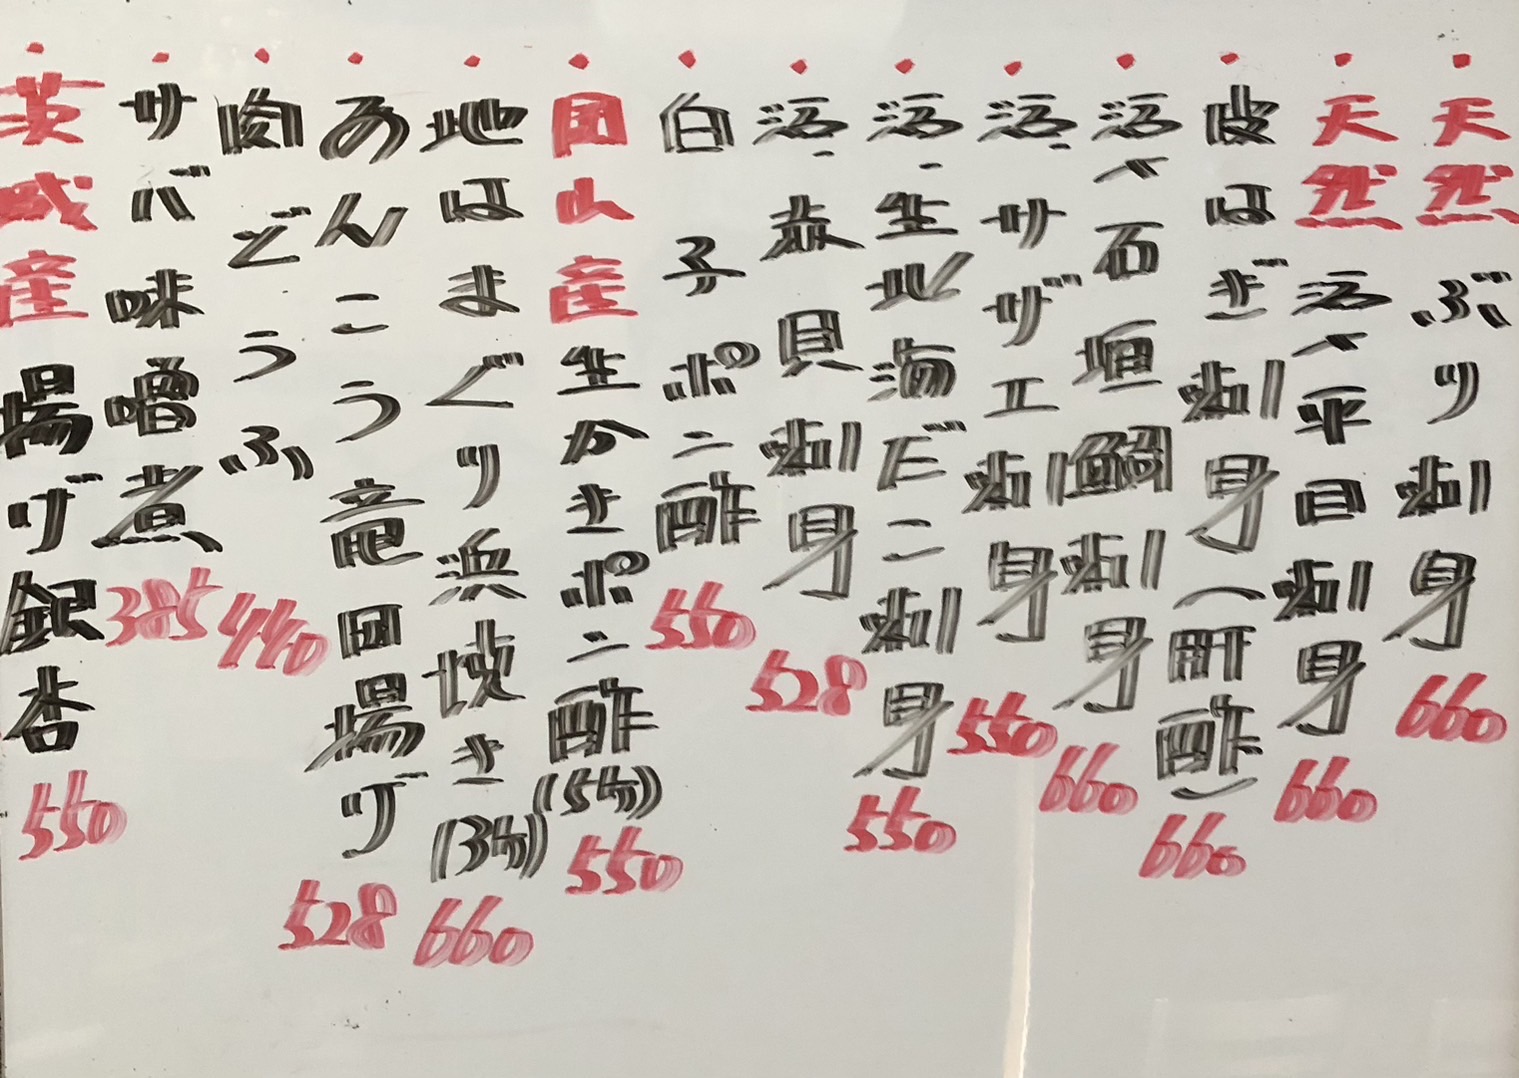 ・天然ぶり刺身 660
・天然活〆平目刺身 660
・皮はぎ刺身(肝酢) 660
・活〆石垣鯛刺身 660
・活・サザエ刺身 550
・活・生北海だこ刺身 550
・活・赤貝刺身 528
・白子ポン酢 550
・岡山産生かきポン酢 550
・地はまぐり浜焼き 660
・あんこう竜田揚げ 528
・肉どうふ 440
・サバ味噌煮 385
・茨城産揚げ銀杏 550